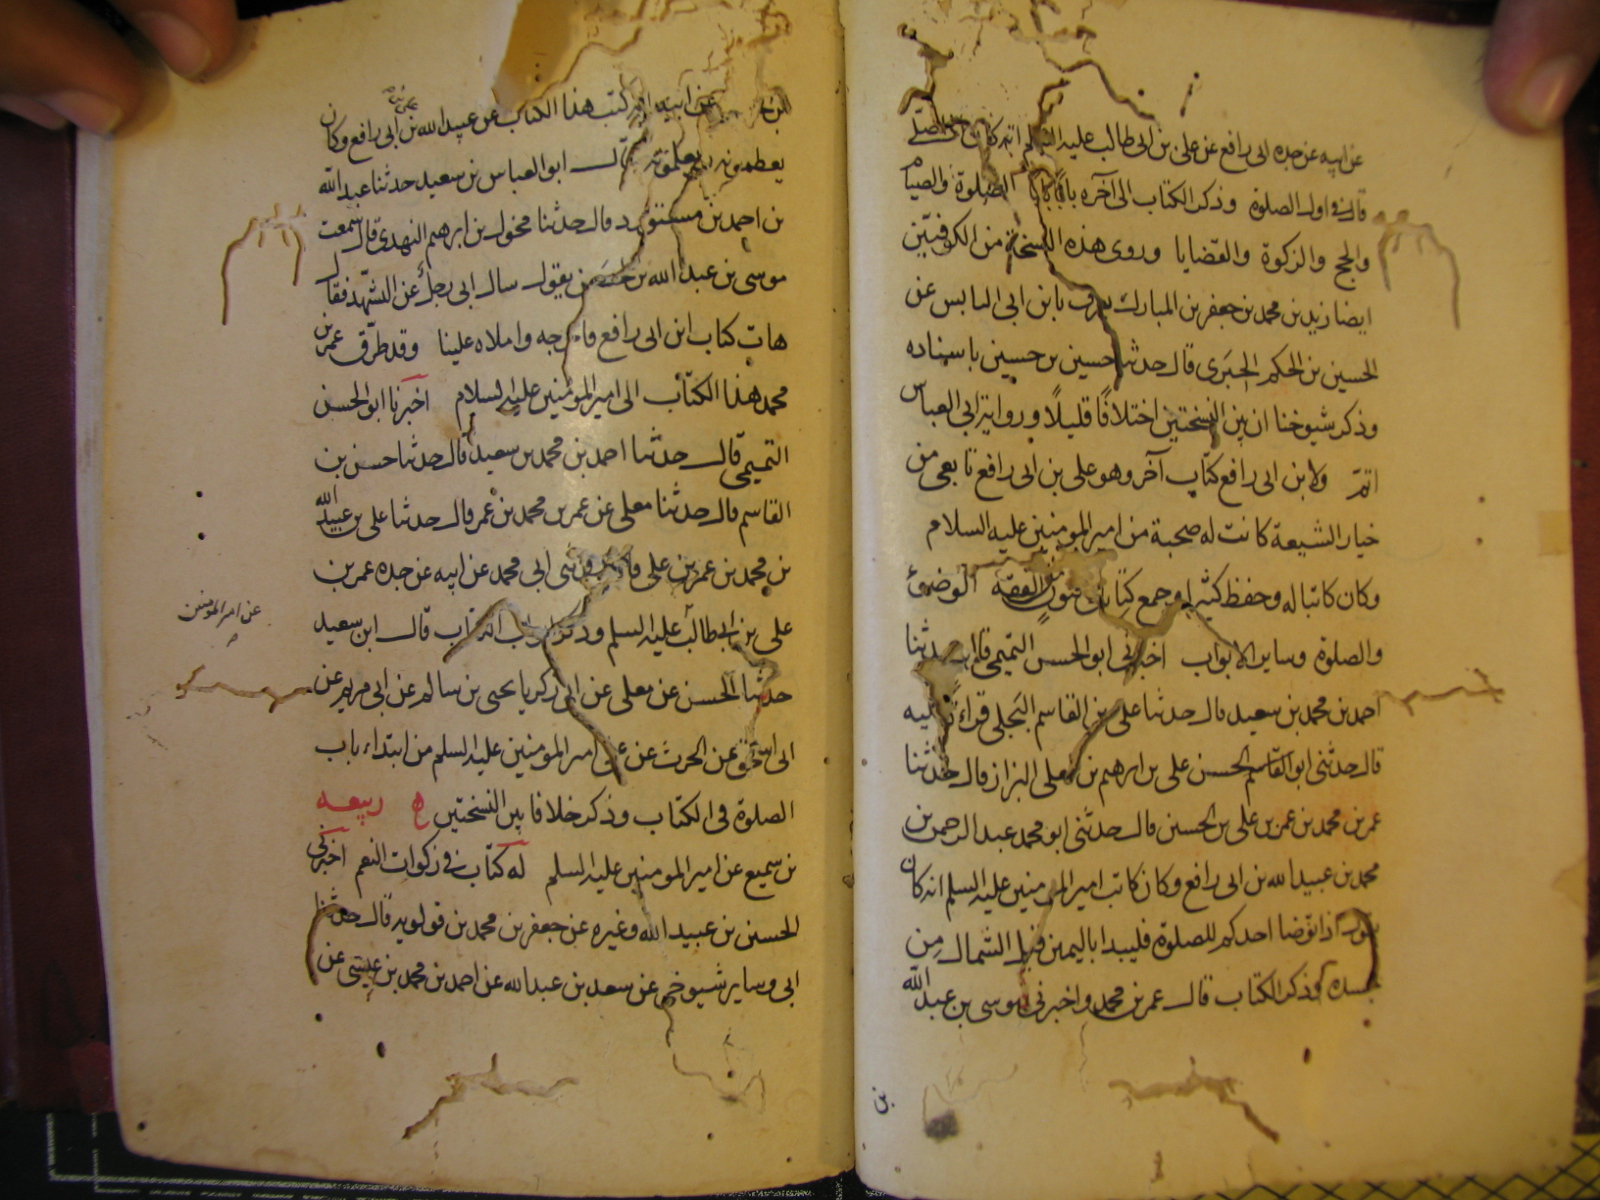 عن ابيه عن جده ابى رافع عن على بن ابى طالب عليه السلم انه كان اذا صلى
قال فى اول الصلوة وذكر الكتاب الى آخره بابا بابا الصلوة والصيام
والحج والزكوة والقضايا وروى هذه النسخة من الكوفيين
ايضا زيد بن محمد بن جعفر بن المبارك يعرف بابن ابى اليابس عن
الحسين بن الحكم الحبرى قال حدثنا حسين بن حسين باسناده
وذكر شيوخنا ان بين النسختين اختلافا قليلا ورواية ابى العباس
اتم ولابن ابى رافع كتاب آخر وهو على بن ابى رافع تابعى من
خيار الشيعة كانت له صحبة من امير المومنين عليه السلام
وكان كاتبا له وحفظ كثيرا وجمع كتابا فى فنون الفقه الوضوء
والصلوة وساير الابواب اخبرنى ابو الحسن التميمى قال حدثنا
احمد بن محمد بن سعيد قال حدثنا على بن القاسم البجلى قراءة عليه
قال حدثنى ابو القاسم الحسن على بن ابرهيم بن معلى البزاز قال حدثنا
عمر بن محمد بن عمر بن على بن الحسين قال حدثنى ابو محمد عبد الرحمن بن
محمد بن عبيد الله بن ابى رافع وكان كاتب امير المومنين عليه السلم انه كان
يقول اذا توضا احدكم للصلوة فليبدا باليمين قبل الشمال من
جسده وذكر الكتاب قال عمر بن محمد واخبرنى موسى بن عبد الله
بن
بن عن ابيه انه كتب هذا الكتاب عن عبيد الله بن على بن ابى رافع وكان
يعظمونه ويعلمونه قال ابو العباس بن سعيد حدثنا عبد الله
بن احمد بن مستورد قال حدثنا مخول بن ابرهيم النهدى قال سمعت
موسى بن عبد الله بن الحسن يقول سال ابى رجل عن التشهد فقال
هات كتاب ابن ابى رافع فاخرجه واملاه علينا وقد طرق عمر بن
محمد هذا الكتاب الى امير المؤمنين عليه السلام اخبرنا ابو الحسن
التميمى قال حدثنا احمد بن محمد بن سعيد قال حدثنا حسن بن
القاسم قال حدثنا معلى عن عمر بن محمد بن عمر قال حدثنا على بن عبيد الله
بن محمد بن عمر بن على قال حدثنى ابى محمد عن ابيه عن جده عمر بن
على بن ابى طالب عليه السلم وذكر ابواب الكتاب قال ابن سعيد
عن امير المومنين
حدثنا الحسن عن معلى عن ابى زكريا يحيى بن سالم عن ابى مريم عن
ابى اسحق عن الحرث عن على امير المومنين عليه السلم من ابتداء باب
الصلوة فى الكتاب وذكر خلافا بين النسختين ه ربيعه
بن سميع عن امير المومنين عليه السلم له كتاب فى زكوات النعم اخبرنى
الحسين بن عبيد الله وغيره عن جعفر بن محمد بن قولويه قال حدثنا
ابى وساير شيوخى عن سعد بن عبد الله عن احمد بن محمد بن عيسى عن